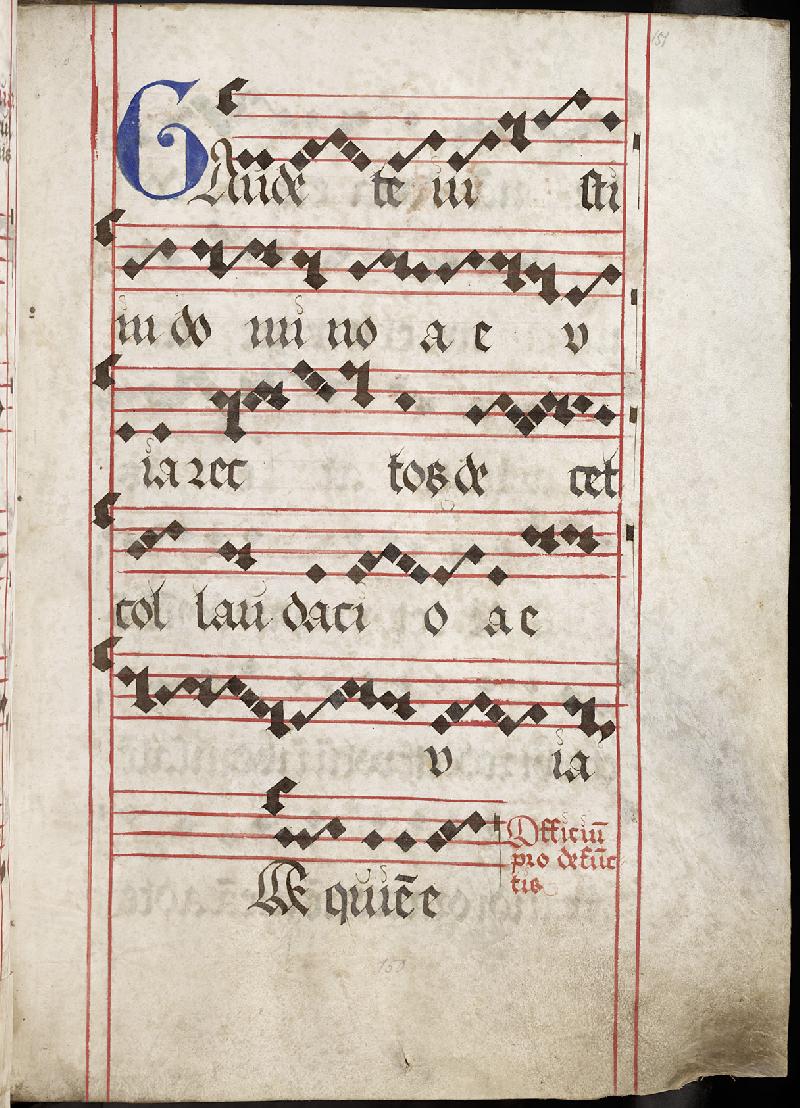 151
GAude te iu sti
in do mi no a e v
ia rec tos de cet
col lau daci o a e
v ia
Officiū
pro defūc
tis
Re quiē e
150